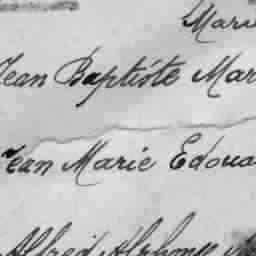 Marie
Jean Baptiste Mar
Jean Marie Edoua
Alfred Alphons